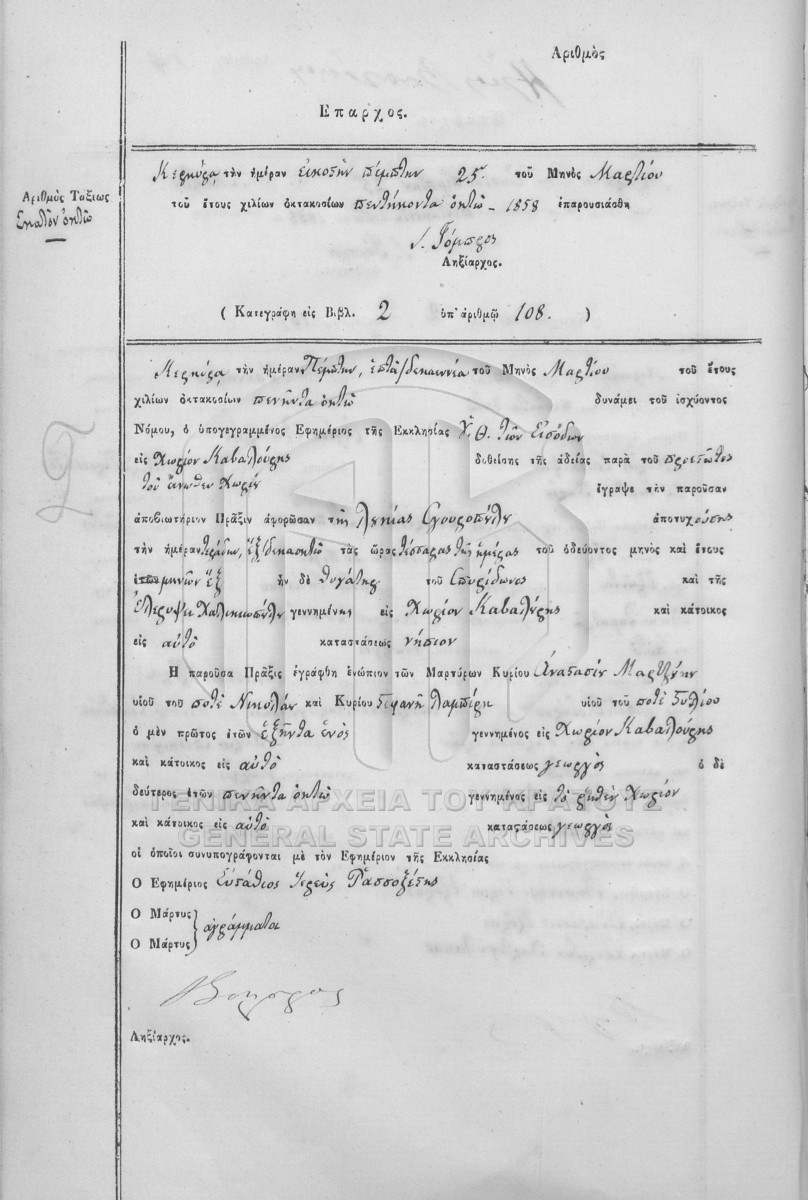 Αριθμὸς
Επαρχος.
Αριθμὸς Ταξεως
Ἑκατὸν ὀκτὼ
Κερκύρᾳ τὴν ἡμέραν εἰκοστὴν πέμπτην 25ην τοῦ Μηνὸς Μαρτίου
τοῦ ἔτους χιλίων ὀκτακοσίων πεντήκοντα ὀκτὼ - 1858 ἐπαρουσιάσθη
Ληξίαρχος.
( Κατεγράφη εἰς Βιβλ. 2 ὑπ' ἀριθμῷ 108. )
Κερκύρᾳ τὴν ἡμέραν Πέμπτην, ἑπτὰ/δεκαεννέα τοῦ Μηνὸς Μαρτίου τοῦ ἔτους
χιλίων ὀκτακοσίων πενῆντα ὀκτὼ δυνάμει τοῦ ἰσχύοντος
Νόμου, ὁ ὑπογεγραμμένος Εφημέριος τῆς Εκκλησίας Υ. Θ. τῶν Εἰσόδων
εἰς Χωρίον Καβαλούρης δοθείσης τῆς ἀδείας παρὰ τοῦ προεστῶτος
τοῦ ἄνωθεν Χωρίου ἔγραψε τὴν παροῦσαν
ἀποβιωτήριον Πρᾶξιν ἀφορῶσαν τῆς Σγουροπούλου ἀποτυχούσης
τὴν ἡμέραν τετράδην, ἕξ/δεκαοκτὼ τὰς ὥρας τέσσαρας τῆς ἡμέρας τοῦ ὁδεύοντος μηνὸς καὶ ἔτους
μηνῶν ἕξ ἦν δὲ θυγάτηρ τοῦ Σπυρίδωνος καὶ τῆς
Χαλικιοπούλου γεννημένης εἰς Χωρίον Καβαλούρης καὶ κάτοικος
εἰς αὐτὸ καταστάσεως νήπιον
Η παροῦσα Πρᾶξις ἐγράφθη ἐνώπιον τῶν Μαρτύρων Κυρίου Ἀναστασίου
υἱοῦ τοῦ ποτὲ Νικολάου καὶ Κυρίου Στεφανῆ Λαμπίρη υἱοῦ τοῦ ποτὲ
ὁ μὲν πρῶτος ἐτῶν ἑξῆντα ἑνὸς γεννημένος εἰς Χωρίον Καβαλούρης
καὶ κάτοικος εἰς αὐτὸ καταστάσεως γεωργὸς ὁ δὲ
δεύτερος ἐτῶν πενῆντα ὀκτὼ γεννημένος εἰς τὸ ῥηθὲν Χωρίον
καὶ κάτοικος εἰς αὐτὸ καταστάσεως γεωργὸς
οἱ ὁποῖοι συνυπογράφονται μὲ τὸν Εφημέριον τῆς Εκκλησίας
Ο Εφημέριος Εὐστάθιος Ἱερεὺς
Ο Μάρτυς
Ο Μάρτυς } ἀγράμματοι
Ληξίαρχος.
ΓΕΝΙΚΑ ΑΡΧΕΙΑ ΤΟΥ ΚΡΑΤΟΥΣ
GENERAL STATE ARCHIVES